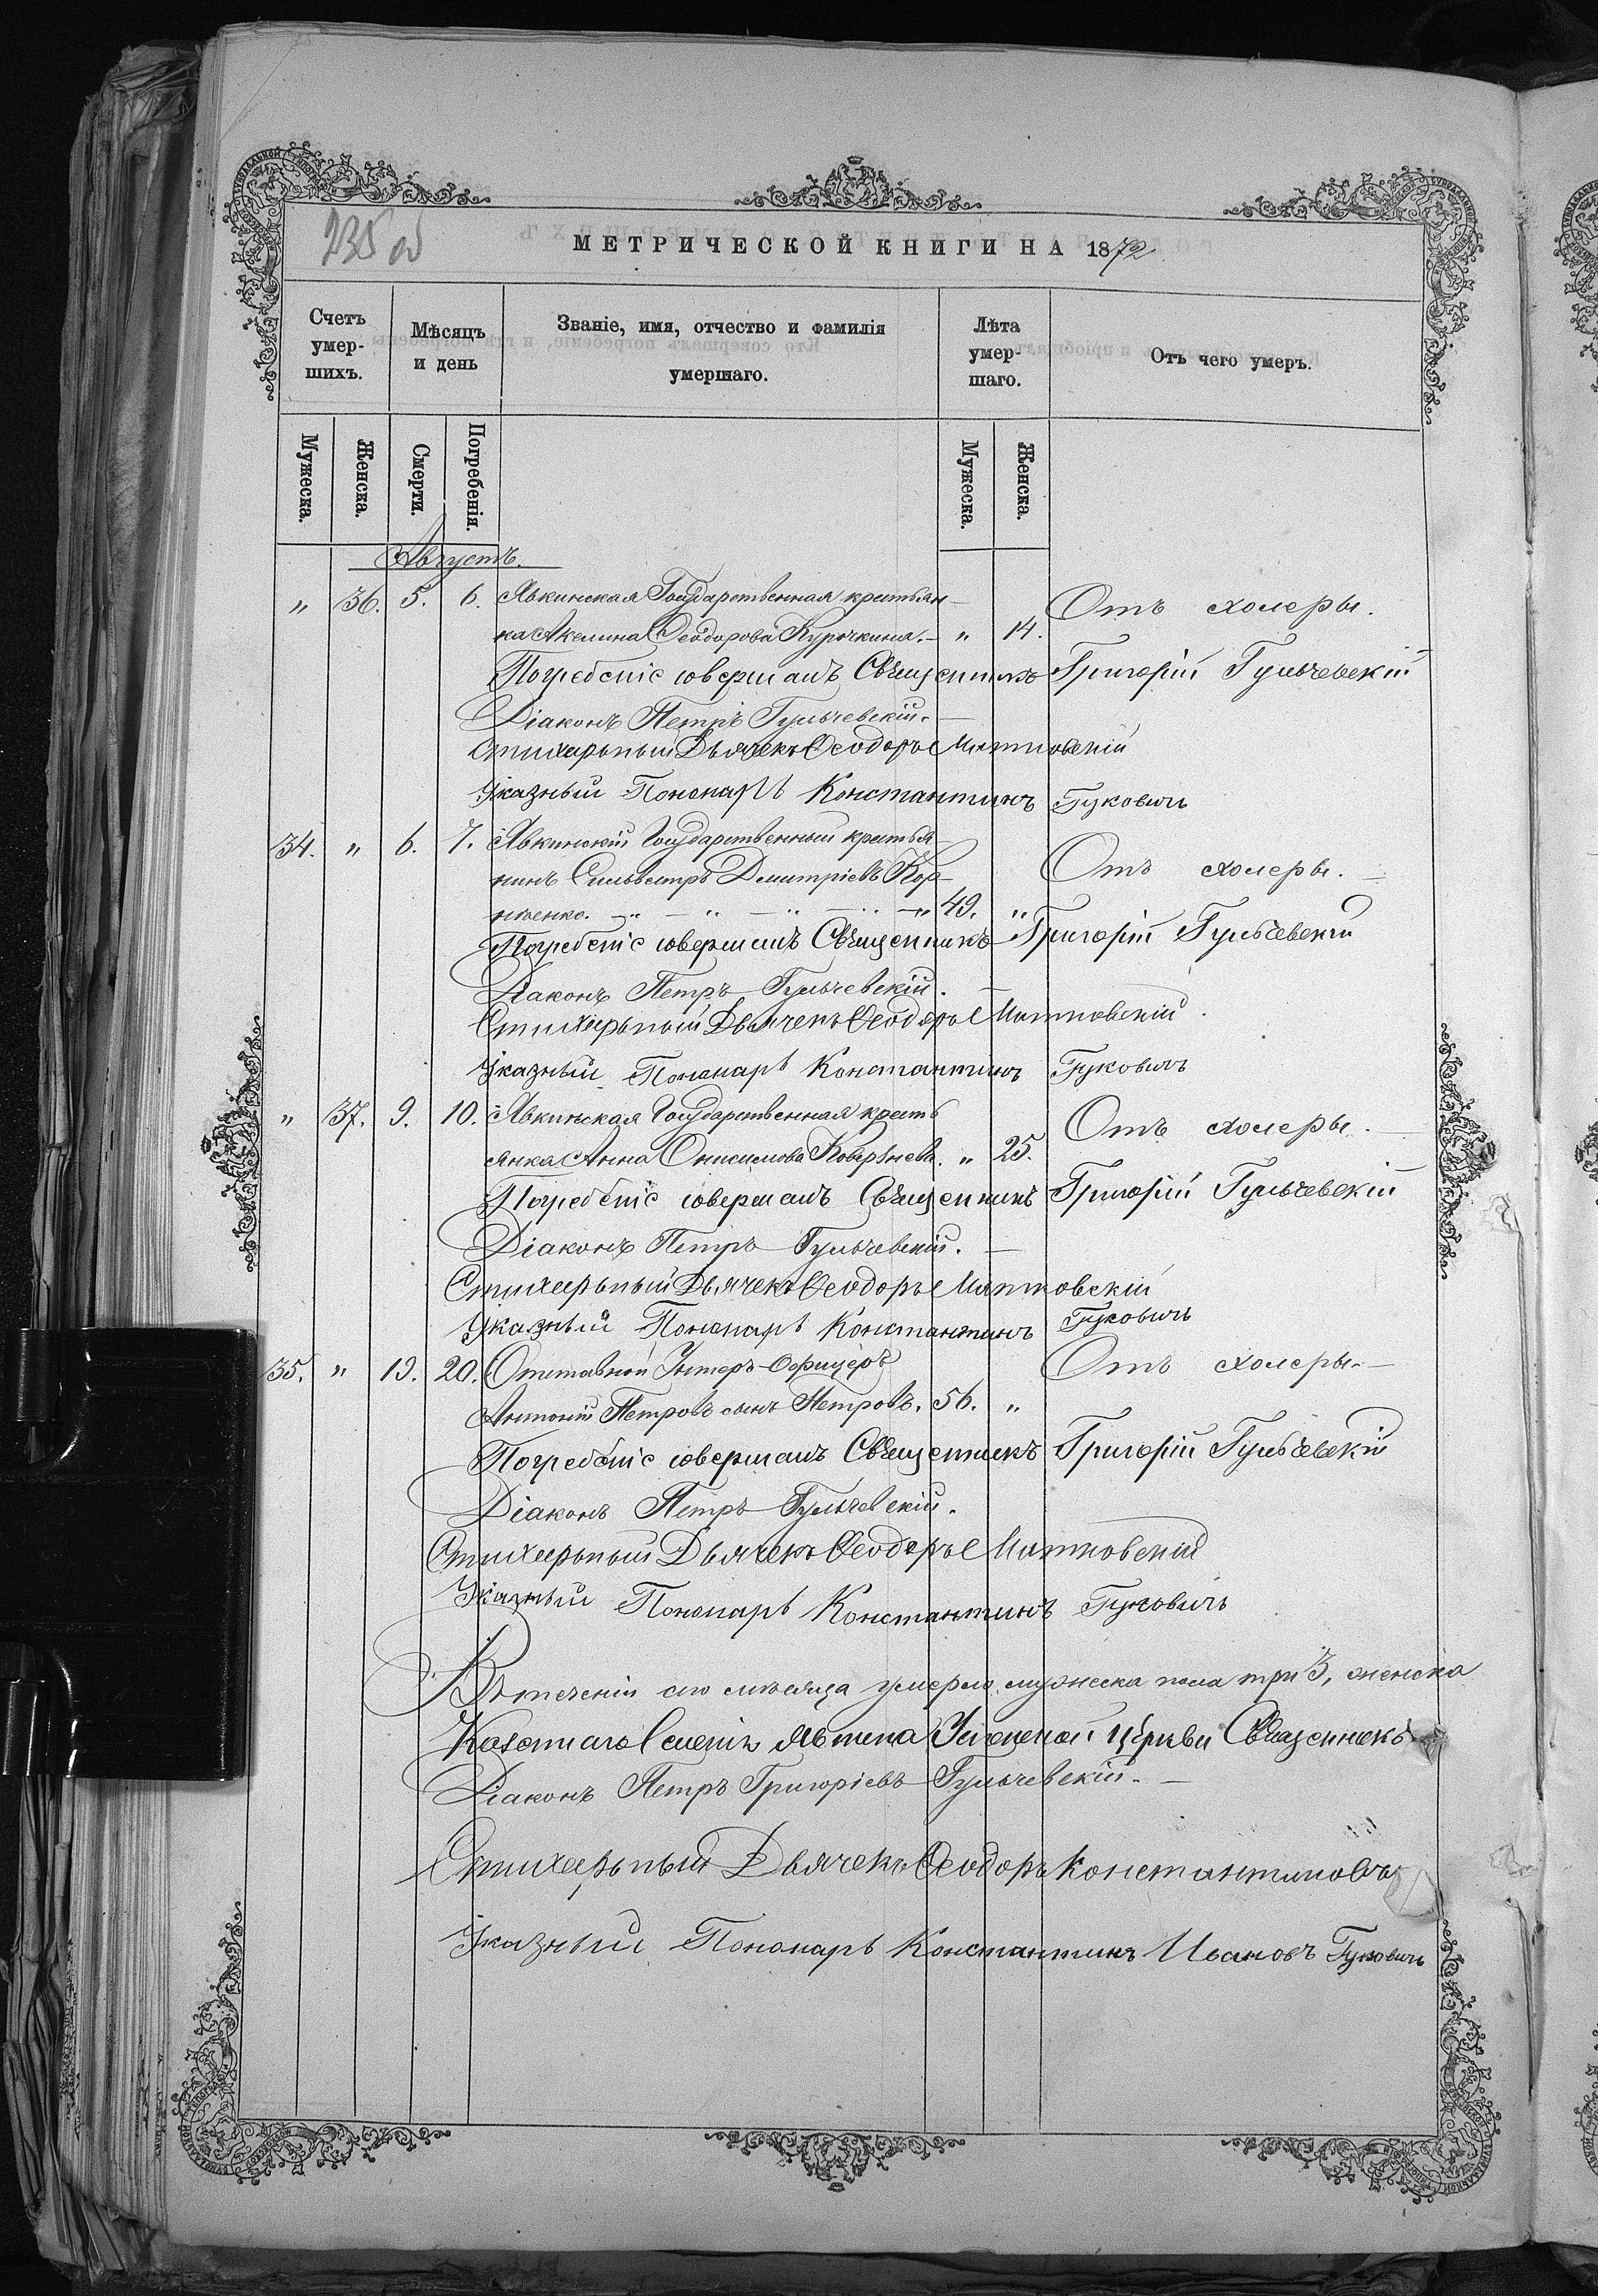 235 об
МЕТРИЧЕСКОЙ КНИГИ НА 1872
Счетъ умершихъ.
Мѣсяцъ и день
Званіе, имя, отчество и фамилія умершаго.
Лѣта умершаго.
Отъ чего умеръ.
Мужеска.
Женска.
Смерти.
Погребенія.
Мужеска.
Женска.
Августъ.
" 36. 5. 6. Явкинская Государственная крестьян-
ка Акелина Ѳеодорова Курочкина. " 14. Отъ холеры.
Погребеніе совершалъ Священникъ Григорій Гульчевскій
Діаконъ Петръ Гульчевскій.
Стихарный Дьячекъ Ѳеодоръ Митковскій
Указный Пономарь Константинъ Гукович
34. " 6. 7. Явкинскій Государственный крестья-
нинъ Сильвестръ Димитріевъ Кор- Отъ холеры.
ніенко. 49. "
Погребеніе совершалъ Священникъ Григорій Гульчевскій
Діаконъ Петръ Гульчевскій.
Стихарный Дьячекъ Ѳеодоръ Митковскій
Указный Пономарь Константинъ Гуковичъ
" 37. 9. 10. Явкинская Государственная кресть
янка Анна Онисимова Коверзнева. " 25. Отъ холеры.
Погребеніе совершалъ Священникъ Григорій Гульчевскій
Діаконъ Петръ Гульчевскій.
Стихарный Дьячекъ Ѳеодоръ Митковскій
Указный Пономарь Константинъ Гуковичъ
35. " 19. 20. Отставной Унтеръ-Офицеръ Отъ холеры.
Антоній Петровъ сынъ Петровъ. 56. "
Погребеніе совершалъ Священникъ Григорій Гульчевскій
Діаконъ Петръ Гульчевскій.
Стихарный Дьячекъ Ѳеодоръ Митковскій
Указный Пономарь Константинъ Гуковичъ
Въ теченіи сего мѣсяца умерло мужеска пола три 3, женска
Успенской Церкви Священникъ
Діаконъ Петръ Григоріевъ Гульчевскій.
Стихарный Дьячекъ Ѳеодоръ Константиновъ
Указный Пономарь Константинъ Ивановъ Гуковичъ